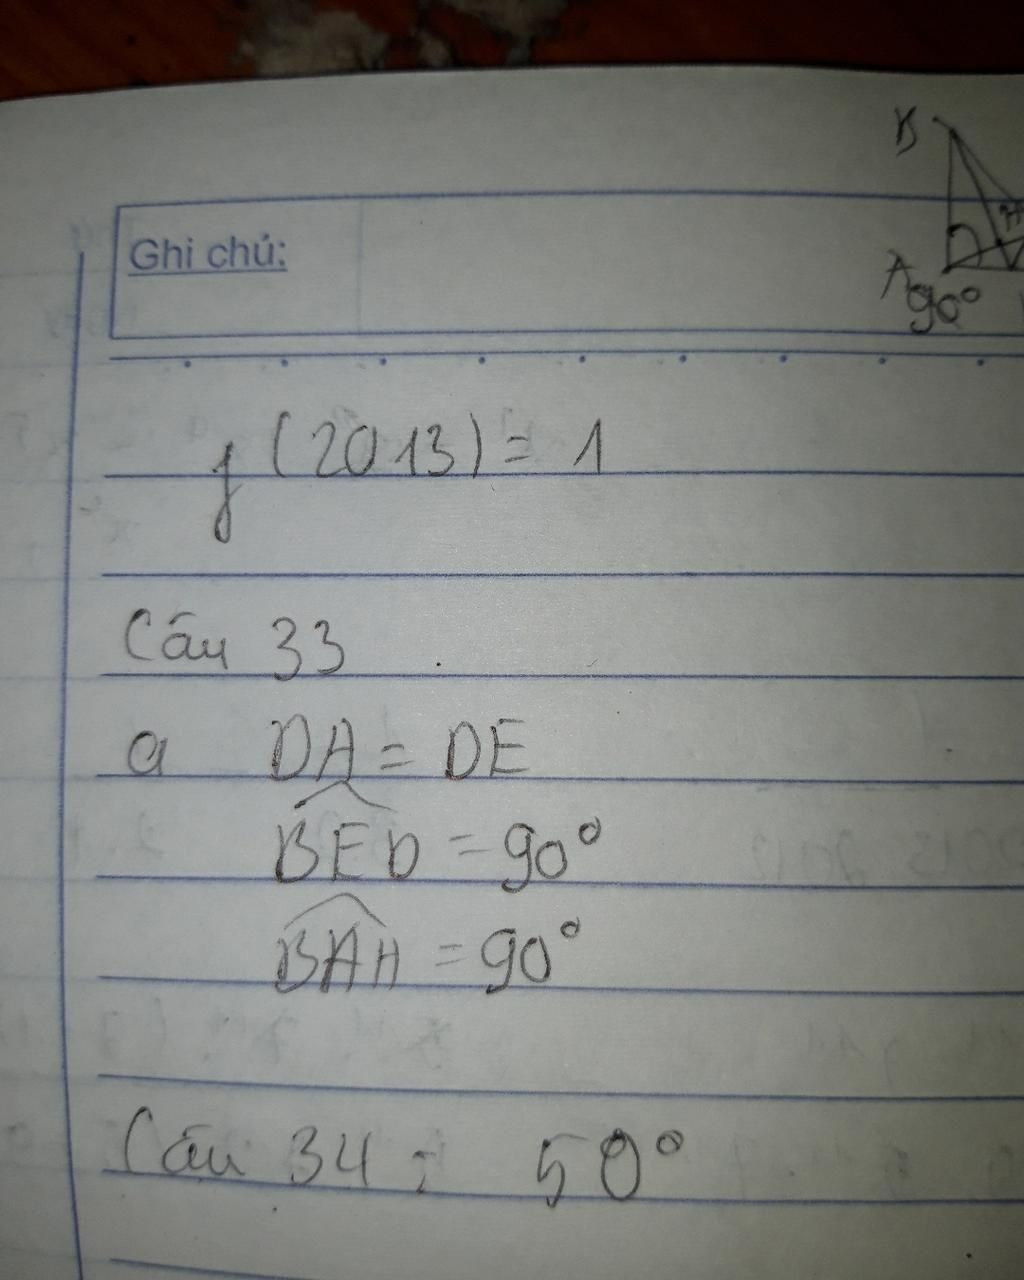 B
Ghi chú:
H
A
90°
f(2013) = 1
Câu 33
a DA = DE
BED = 90°
BAH = 90°
Câu 34 : 50°